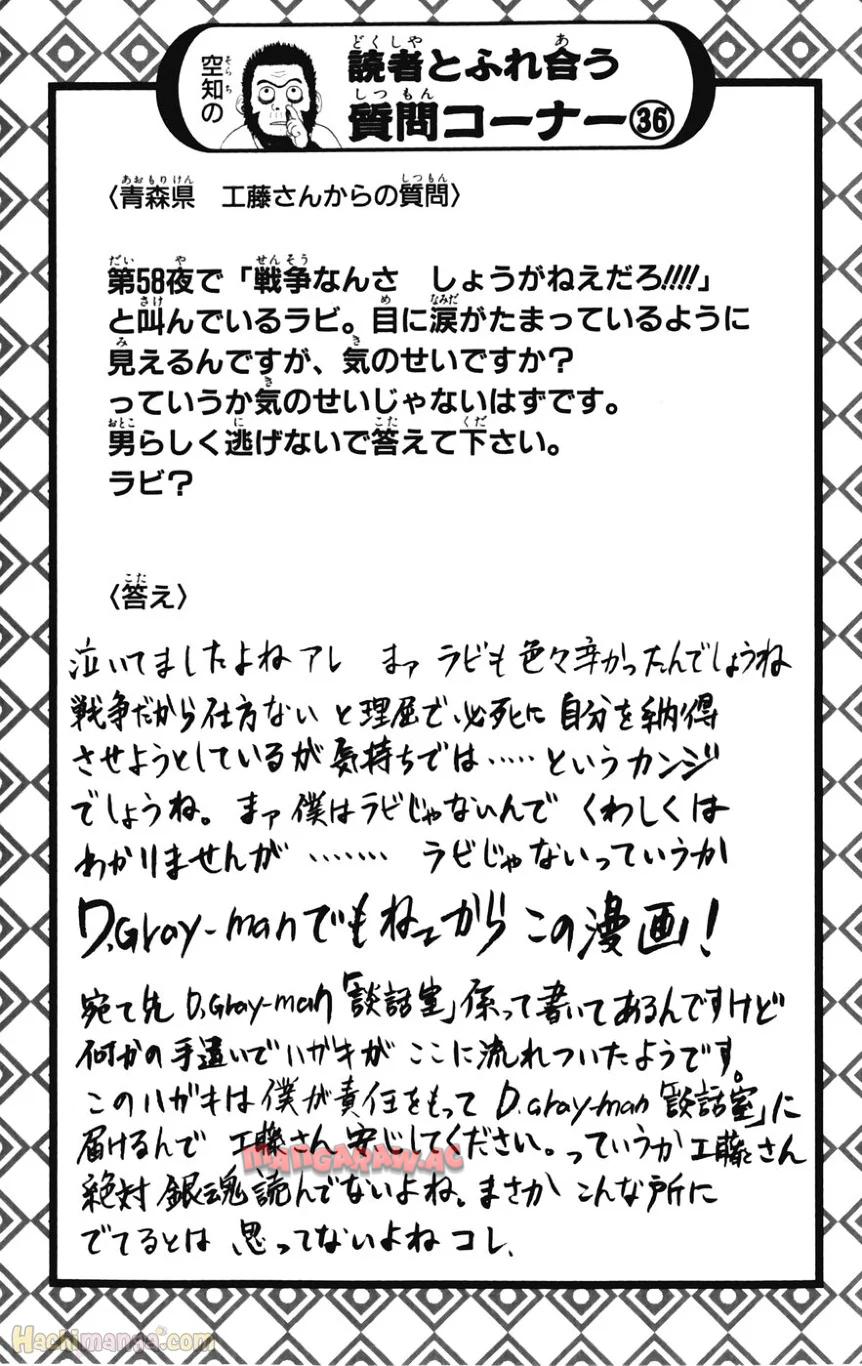 空知の
読者とふれ合う
質問コーナー㊱
〈青森県　工藤さんからの質問〉
第58夜で「戦争なんさ　しょうがねえだろ!!!!」
と叫んでいるラビ。目に涙がたまっているように
見えるんですが、気のせいですか？
っていうか気のせいじゃないはずです。
男らしく逃げないで答えて下さい。
ラビ？
〈答え〉
泣いてましたよねアレ　まァ ラビも色々辛かったんでしょうね
戦争だから仕方ない と理屈で必死に 自分を納得
させようとしているが気持ちでは……というカンジ
でしょうね。まァ僕はラビじゃないんで くわしくは
わかりませんが ……… ラビじゃないっていうか
D.Gray-manでもねーからこの漫画！
宛て先 D.Gray-man「談話室」係って書いてあるんですけど
何かの手違いでハガキが ここに流れついたようです。
このハガキは僕が責任をもって D.Gray-man「談話室」に
届けるんで 工藤さん安心してください。っていうか工藤さん
絶対 銀魂読んでないよね。まさか こんな所に
でてるとは 思ってないよねコレ.
MANGARAW.AC
Hachimanga.com